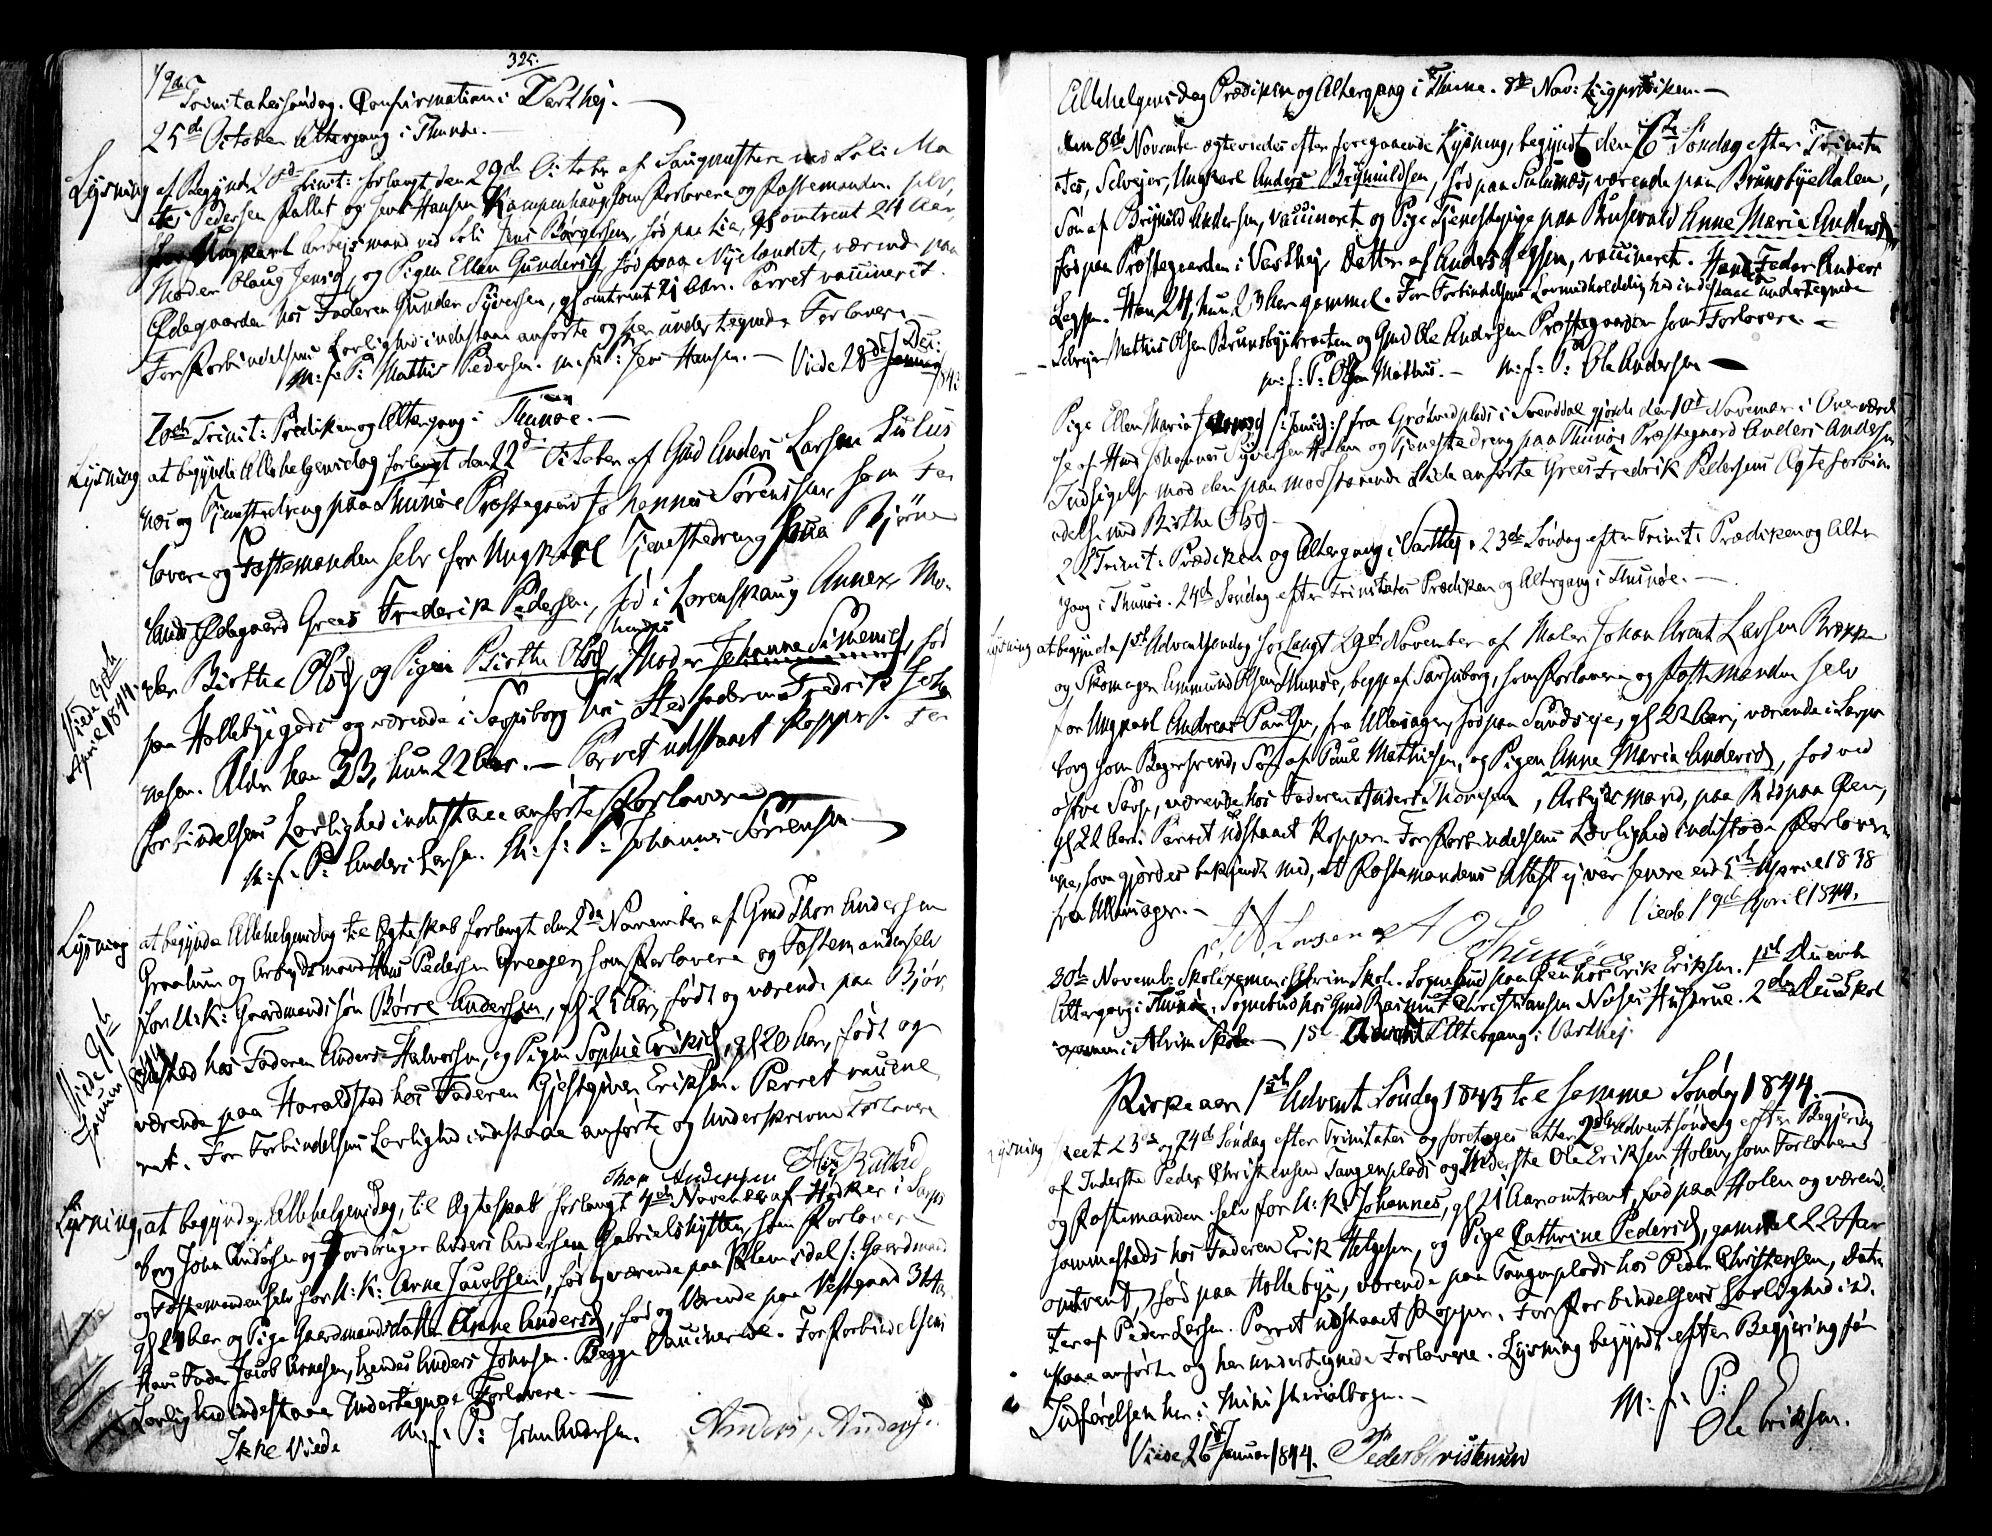 325.
19de Trinitatessøndag. Confirmation i Varthej.
25de October Altergang i Thunøe.
Lysning at begynde 20de Trinit: forlangt den 29de October af Saugmester ved Soli Ma
Pedersen Pallet og Jens Hansen Kampenhaug som Forlovere og Fæstemanden selv,
Ungkarl Arbejdsmand ved Soli Jens Børgersen, fød paa Lia, gl omtrent 24 Aar,
Moder Olaug Jensd, og Pigen Ellen Gundersd, fød paa Nylandet, værende paa
Ødegaarden hos Faderen Gunder Syversen, gl omtrent 21 Aar. Parret vaccineret.
For Forbindelsens Lovlighed indestaae anførte og her undertegnede Forlovere.
M: f: P: Mathis Pedersen. m: f: P: Jens Hansen. — Viede 28de Dec: 1843
20de Trinit: Prædiken og Altergang i Thunøe. —
Lysning at begynde Allehelgensdag forlangt den 22de October af Gmd Anders Larsen Sulus
næs og Tjenestedreng paa Thunøe Præstegaard Johannes Sørenssen som For
lovere og Fæstemanden selv for Ungkarl Tjenestedreng paa Bjørne
lands Ødegaard Grees Frederik Pedersen, fød i Lorenskaug Annex, Mo
der Birthe Olsd, og Pigen Birthe Olsd, hendes Moder Johanne Simensd, fød
paa Hollebyegods og værende i Sarpsborg hos Stedfaderen Fredrik Joha
nesen. Alder han 33, hun 22 Aar. — Parret udstaaet Kopper. For
Forbindelsens Lovlighed indestaae anførte Forlovere
M: f: P: Anders Larsen. M: f: P: Johannes Sørensen
Viede 30te April 1844.
Lysning at begynde Allehelgensdag til Ægteskab forlangt den 2den November af Gmd Thor Andersen
Graalum og Arbejdsmand Hans Pedersen Greager, som Forlovere og Fæstemanden selv
for U: K: Gaardmandssøn Børre Andersen, gl 25 Aar, født og værende paa Bjør
nstad hos Faderen Anders Halvorsen, og Pigen Sophie Eriksd, gl 20 Aar, født og
værende paa Haraldstad hos Faderen Gjestgiver Eriksen. Parret vaccine
ret. For Forbindelsens Lovlighed indestaae anførte og underskrevne Forlovere
Thor Andersen
Viede 9de Januar 1844
Lysning, at begynde Allehelgensdag, til Ægteskab forlangt 4de November af Høker i Sarps
borg John Andersen og Jordbruger Anders Andersen Gabrielshytten, som Forlovere
og Fæstemanden selv for U: K: Arne Jacobsen, fød og værende paa Klemsdal /: Gaardmand
gl 29 Aar og Pige Gaardmandsdatter Anne Andersd, fød og værende paa Vestgaard 31 Aar
Hans Fader Jacob Arnesen, hendes Anders Johnsen. Begge Vaccinerede. For Forbindelsens
Lovlighed indestaae Undertegnede Forlovere. —
Ikke Viede M: f: P: John Andersen. Anders, Anders.
Allehelgensdag Prædiken og Altergang i Thunøe. 8de Nov: Ligprædiken. —
Den 8de November ægteviedes efter foregaaende Lysning, begyndt den 16de Søndag efter Trinita
tes, Selvejer, Ungkarl Anders Brynnildsen, fød paa Sulusnæs, værende paa Brunsbye Kalen,
Søn af Brynild Andersen, vaccineret og Pige Tjenestepige paa Brusevold Anne Maria Andersd
fød paa Præstegaarden i Varthej, Datter af Anders Legssen, vaccineret. Hans Fader Anders
Legssen. Han 24, hun 23 Aar gammel. For Forbindelsens Lovmedholdelighed indestaae undertegnede
Selvejer Mathis Olsen Brunsbyebraaten og Gmd Ole Andersen Præstegaarden som Forlovere. —
m: f: P: Olsen Mathis. — m: f: P: Ole Andersen —
Pige Ellen Maria Jensd fra Grøtvedplads i Svenddal gjorde den 10de November i Overværel
se af Hmd Johannes Syversen Holen og Tjenestedreng paa Thunøe Præstegaard Anders Andersen
Indsigelse mod den paa modstaaende Side anførte Grees Fredrik Pedersens Ægteforbin
delse med Birthe Olsd. —
22 Trinit: Prædiken og Altergang i Varthej. 23de Søndag efter Trinit: Prædiken og Alter
gang i Thunøe. 24de Søndag efter Trinitates Prædiken og Altergang i Thunøe. —
Lysning at begynde 1ste Adventsøndag forlangt 29de November af Maler Johan Arent Larsen Brække
og Skomager Ammund Olsen Thunøe, begge af Sarpsborg, som Forlovere og Fæstemanden selv
for Ungkarl Andreas Paulsen, fra Ullensager, fød paa Sundseje, gl 22 Aar, værende i Sarps
borg som Bagersvend, Søn af Paul Mathiesen, og Pigen Anne Maria Andersd, fød ved
østre Sarp, værende hos Faderen Anders Thoresen, Arbejdsmand, paa Rød paa Øen,
gl 22 Aar. Parret udstaaet Kopper. For Forbindelsens Lovlighed indestode Forlover
ne, som gjordes bekjendt med, at Fæstemandens Attest ej var senere end 5te April 1838
fra Ullensager. — Viede 19de April 1844.
J A Larsen A O Thunøe
30te Novemb: Skoleexamen i Alvim Skole. Sognebud paa Øen hos Erik Eriksen. 1ste December
Altergang i Thunøe. Sognebud hos Gmd Rasmus Christiansen Nuses Hustrue. 2den Dec: Skol
examen i Alvim Skole. — 1ste Advent Altergang i Varthej.
Kirkeaar 1ste Advent Søndag 1843 til samme Søndag 1844.
Lysning skeet 23de og 24de Søndag efter Trinitates og foretages atter 2den Adventsøndag efter Begjering
af Inderste Peder Christensen Tangenplads og Inderste Ole Eriksen Holen, som Forlovere
og Fæstemanden selv for U: K: Johannes, gl 21 Aar omtrent, fød paa Holen og værende
sammesteds hos Faderen Erik Helgesen, og Pige Cathrine Pedersd, gammel 22 Aar
omtrent, fød paa Hollebye, værende paa Tangenplads hos Peder Christensen, Dat
ter af Peder Larsen. Parret udstaaet Kopper. For Forbindelsens Lovlighed ind
staae anførte og her undertegnede Forlovere. Lysning begyndt efter Begjering før
Indførelsen her i Ministerialbogen. —
M: f: P:
Ole Eriksen.
Viede 26de Januar 1844. Peder Christensen